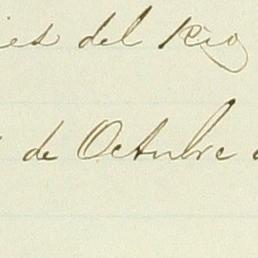 del Rio
de Octubre